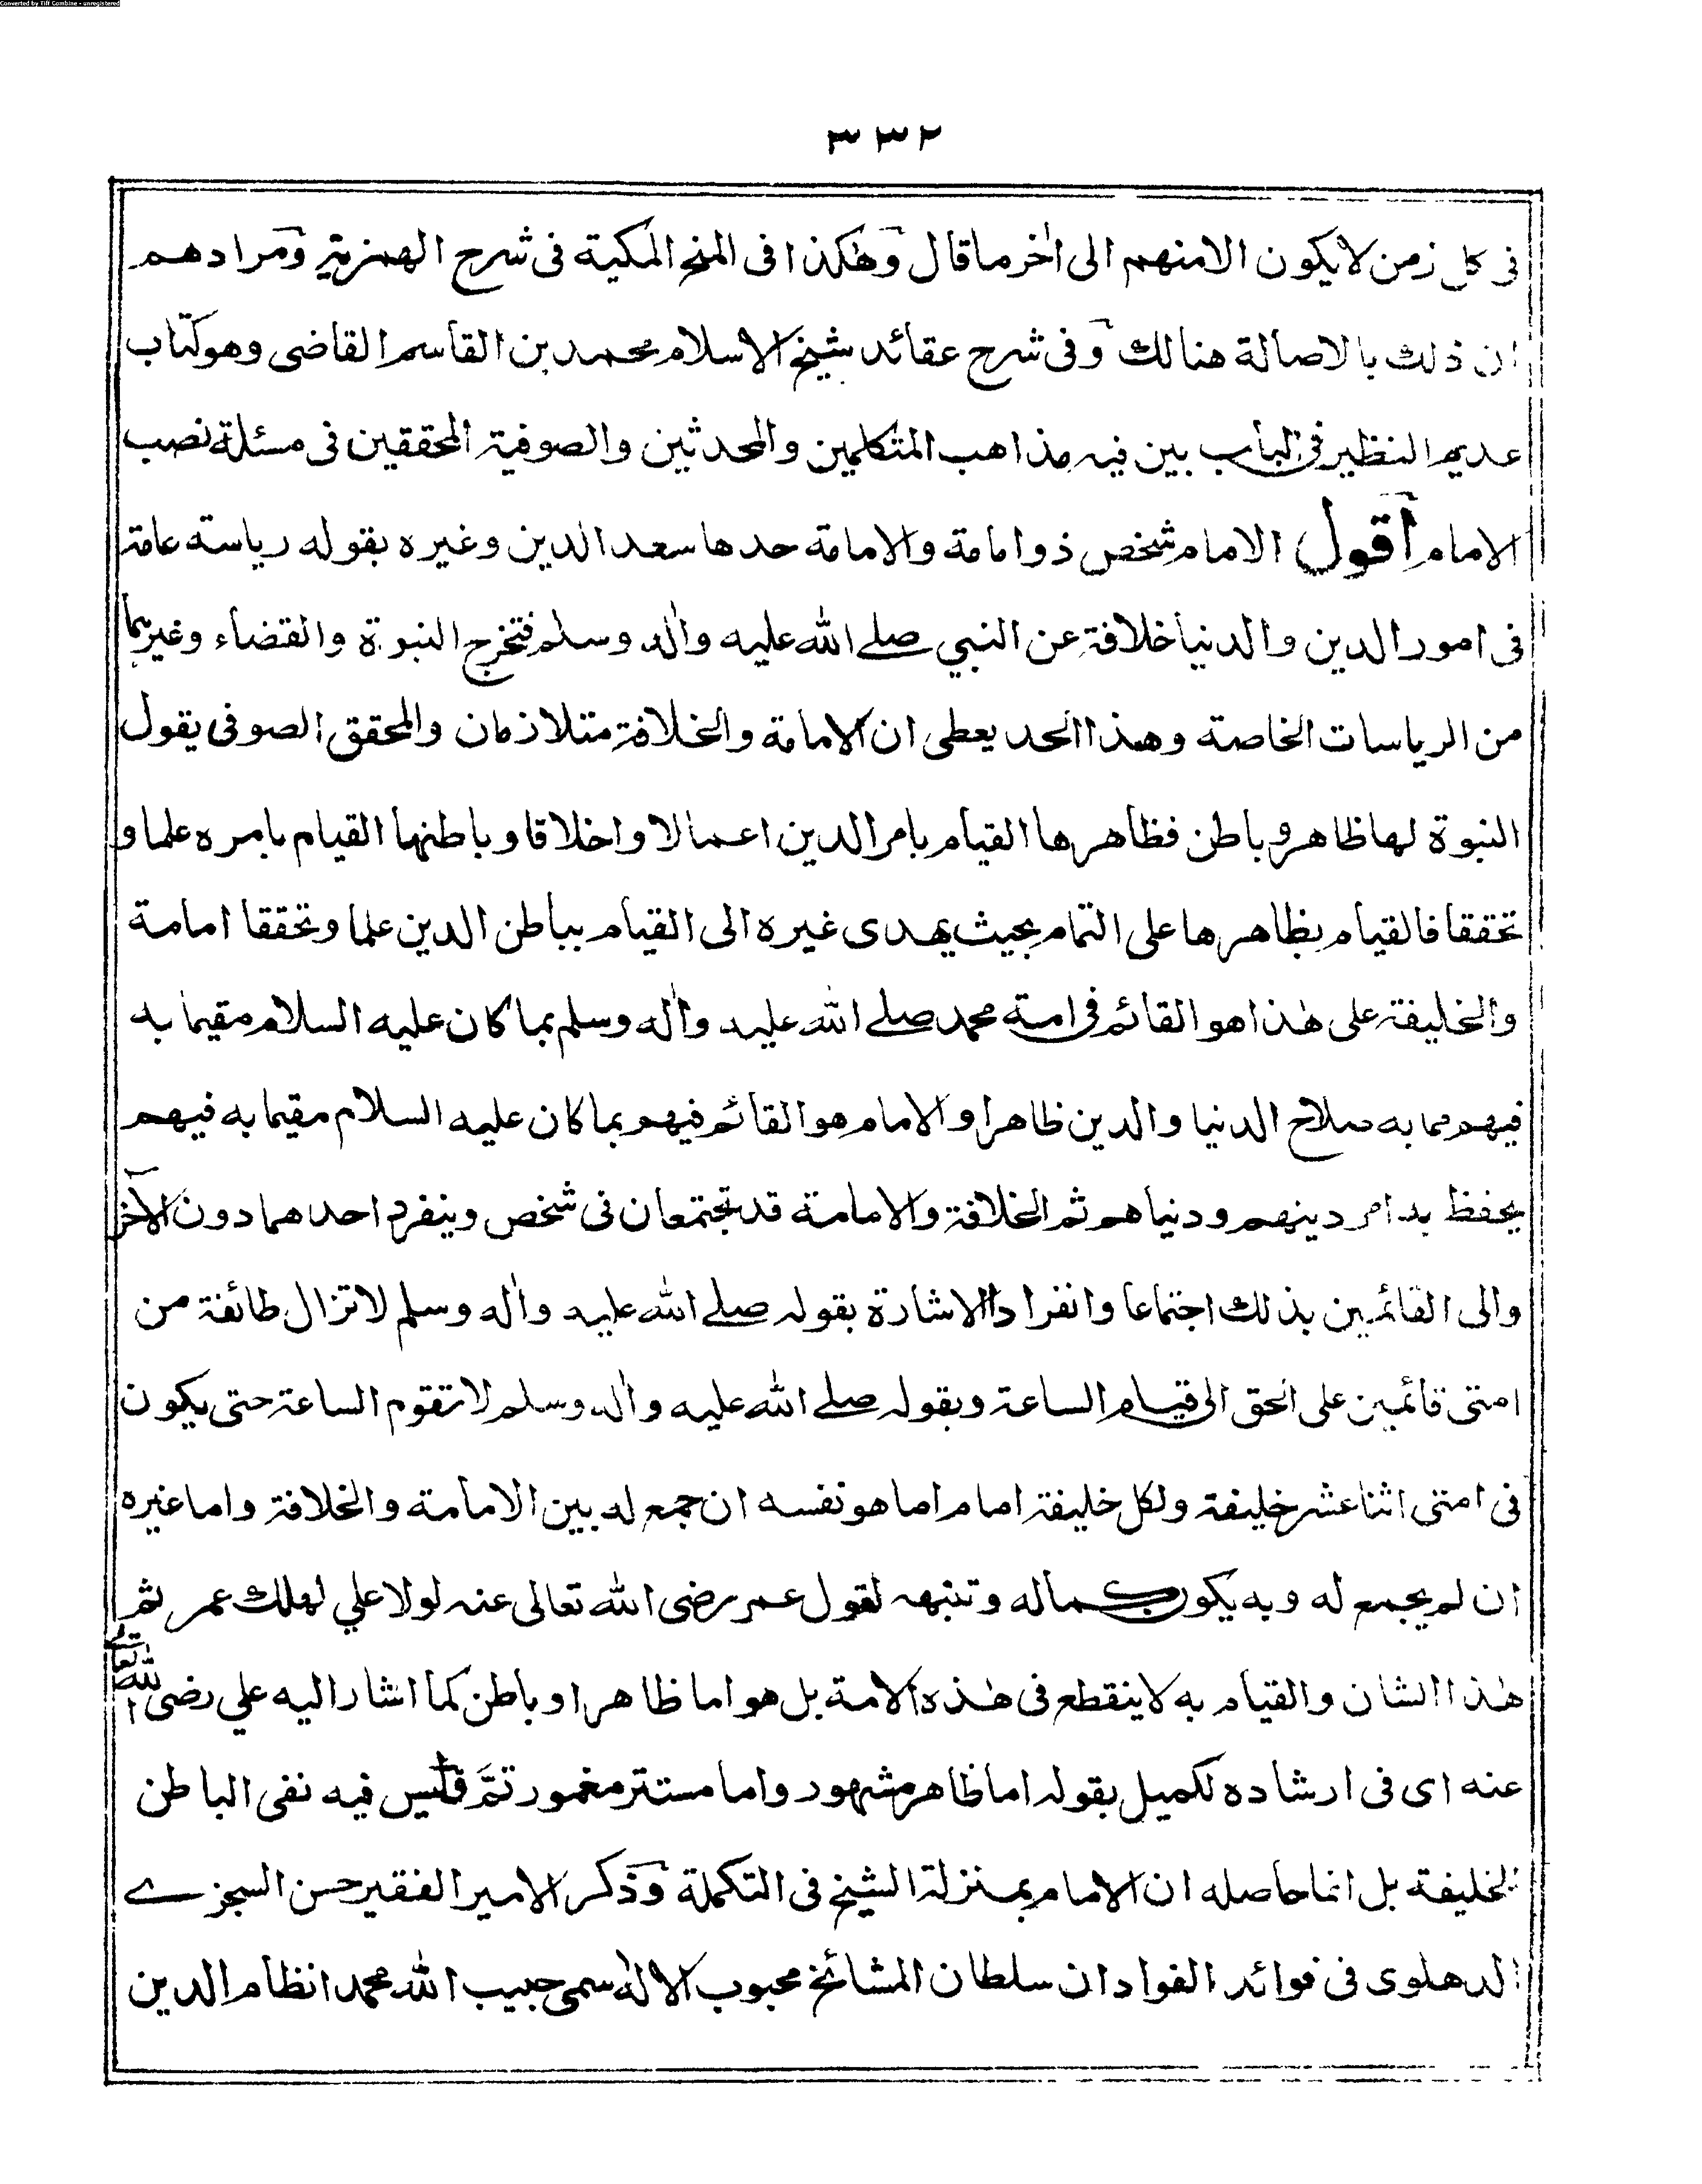 Converted by Tiff Combine - unregistered
٣٣٢
فى كل زمن لايكون الامنهم الى اٰخر ماقال وهٰكذا فى المنح المكية فى شرح الهمزية ومرادهم
ان ذلك بالاصالة هنالك وفى شرح عقائد شيخ الاسلام محمد بن القاسم القاضى وهو كتاب
عديم النظير فى الباب بين فيه مذاهب المتكلمين والمحدثين والصوفية المحققين فى مسئلة نصب
الامام اقول الامام شخص ذو امامة والامامة حدها سعد الدين وغيره بقوله رياسة عامة
فى امور الدين والدنيا خلافة عن النبي صلے الله عليه واٰله وسلم فتخرج النبوة والقضاء وغيرهما
من الرياسات الخاصة وهذا الحد يعطى ان الامامة والخلافة متلازمان والمحقق الصوفى يقول
النبوة لها ظاهر وباطن فظاهرها القيام بامر الدين اعمالا واخلاقا وباطنها القيام بامره علما و
تحققا فالقيام بظاهرها على التمام بحيث يهدى غيره الى القيام بباطن الدين علما وتحققا امامة
والخليفة على هٰذا هو القائم فى امة محمد صلے الله عليه واٰله وسلم بما كان عليه السلام مقيما به
فيهم مما به صلاح الدنيا والدين ظاهرا والامام هو القائم فيهم بما كان عليه السلام مقيما به فيهم
يحفظ به امر دينهم ودنياهم ثم الخلافة والامامة قد تجتمعان فى شخص وينفرد احدهما دون الآخر
والى القائمين بذلك اجتماعا وانفرادا الاشارة بقوله صلے الله عليه واٰله وسلم لا تزال طائفة من
امتى قائمين على الحق الى قيام الساعة وبقوله صلے الله عليه واٰله وسلم لا تقوم الساعة حتى يكون
فى امتى اثنا عشر خليفة ولكل خليفة امام اما هو نفسه ان جمع له بين الامامة والخلافة واما غيره
ان لم يجمع له وبه يكون كماله وتنبهه لقول عمر رضى الله تعالى عنه لولا علي لهلك عمر ثم
هٰذا الشان والقيام به لا ينقطع فى هٰذه الامة بل هو اما ظاهرا وباطن كما اشار اليه علي رضى الله تعالى
عنه اى فى ارشاده لكميل بقوله اما ظاهر مشهور واما مستتر مغمور تمّ قلت ليس فيه نفى الباطن
الخليفة بل انما حاصله ان الامام بمنزلة الشيخ فى التكملة وذكر الامير الفقير حسن السجزے
الدهلوى فى فوائد الفواد ان سلطان المشائخ محبوب الالٰه سمى حبيب الله محمدا نظام الدين